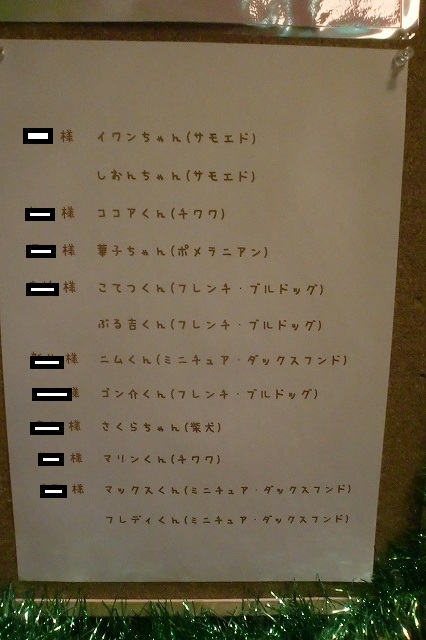 様 イワンちゃん(サモエド)
しおんちゃん(サモエド)
様 ココアくん(チワワ)
様 菓子ちゃん(ポメラニアン)
様 こてつくん(フレンチ・ブルドッグ)
ぶる吉くん(フレンチ・ブルドッグ)
様 ニムくん(ミニチュア・ダックスフンド)
様 ゴン介くん(フレンチ・ブルドッグ)
様 さくらちゃん(柴犬)
様 マリンくん(チワワ)
様 マックスくん(ミニチュア・ダックスフンド)
フレディくん(ミニチュア・ダックスフンド)